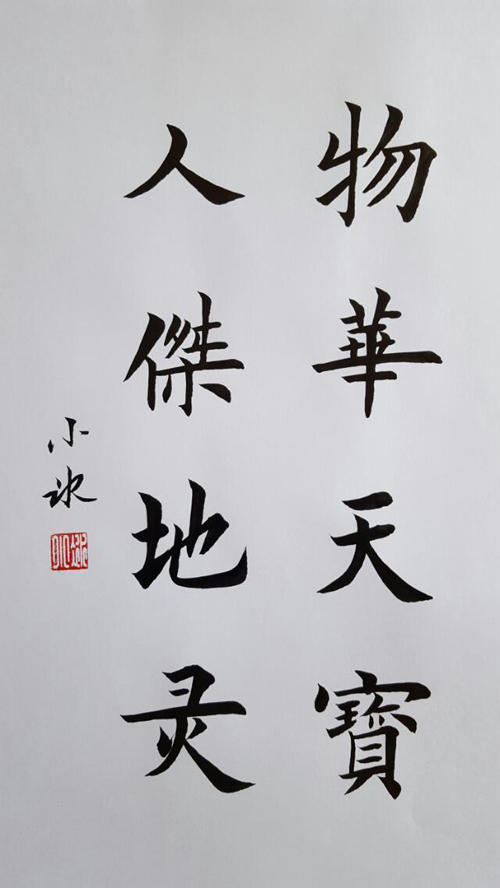 物華天寶
人傑地灵
小冰